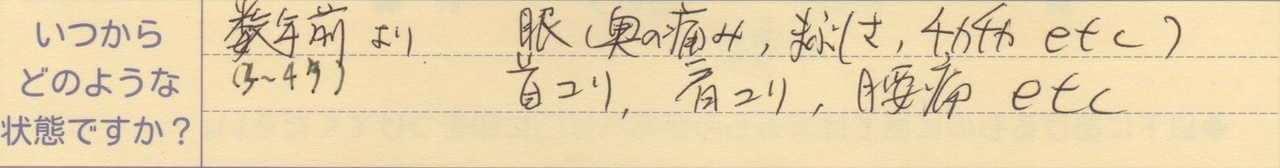 いつから
どのような
状態ですか？
数年前より 眼（奥の痛み，まぶしさ，チカチカ etc）
（3～4年）
首コリ，肩コリ，腰痛 etc